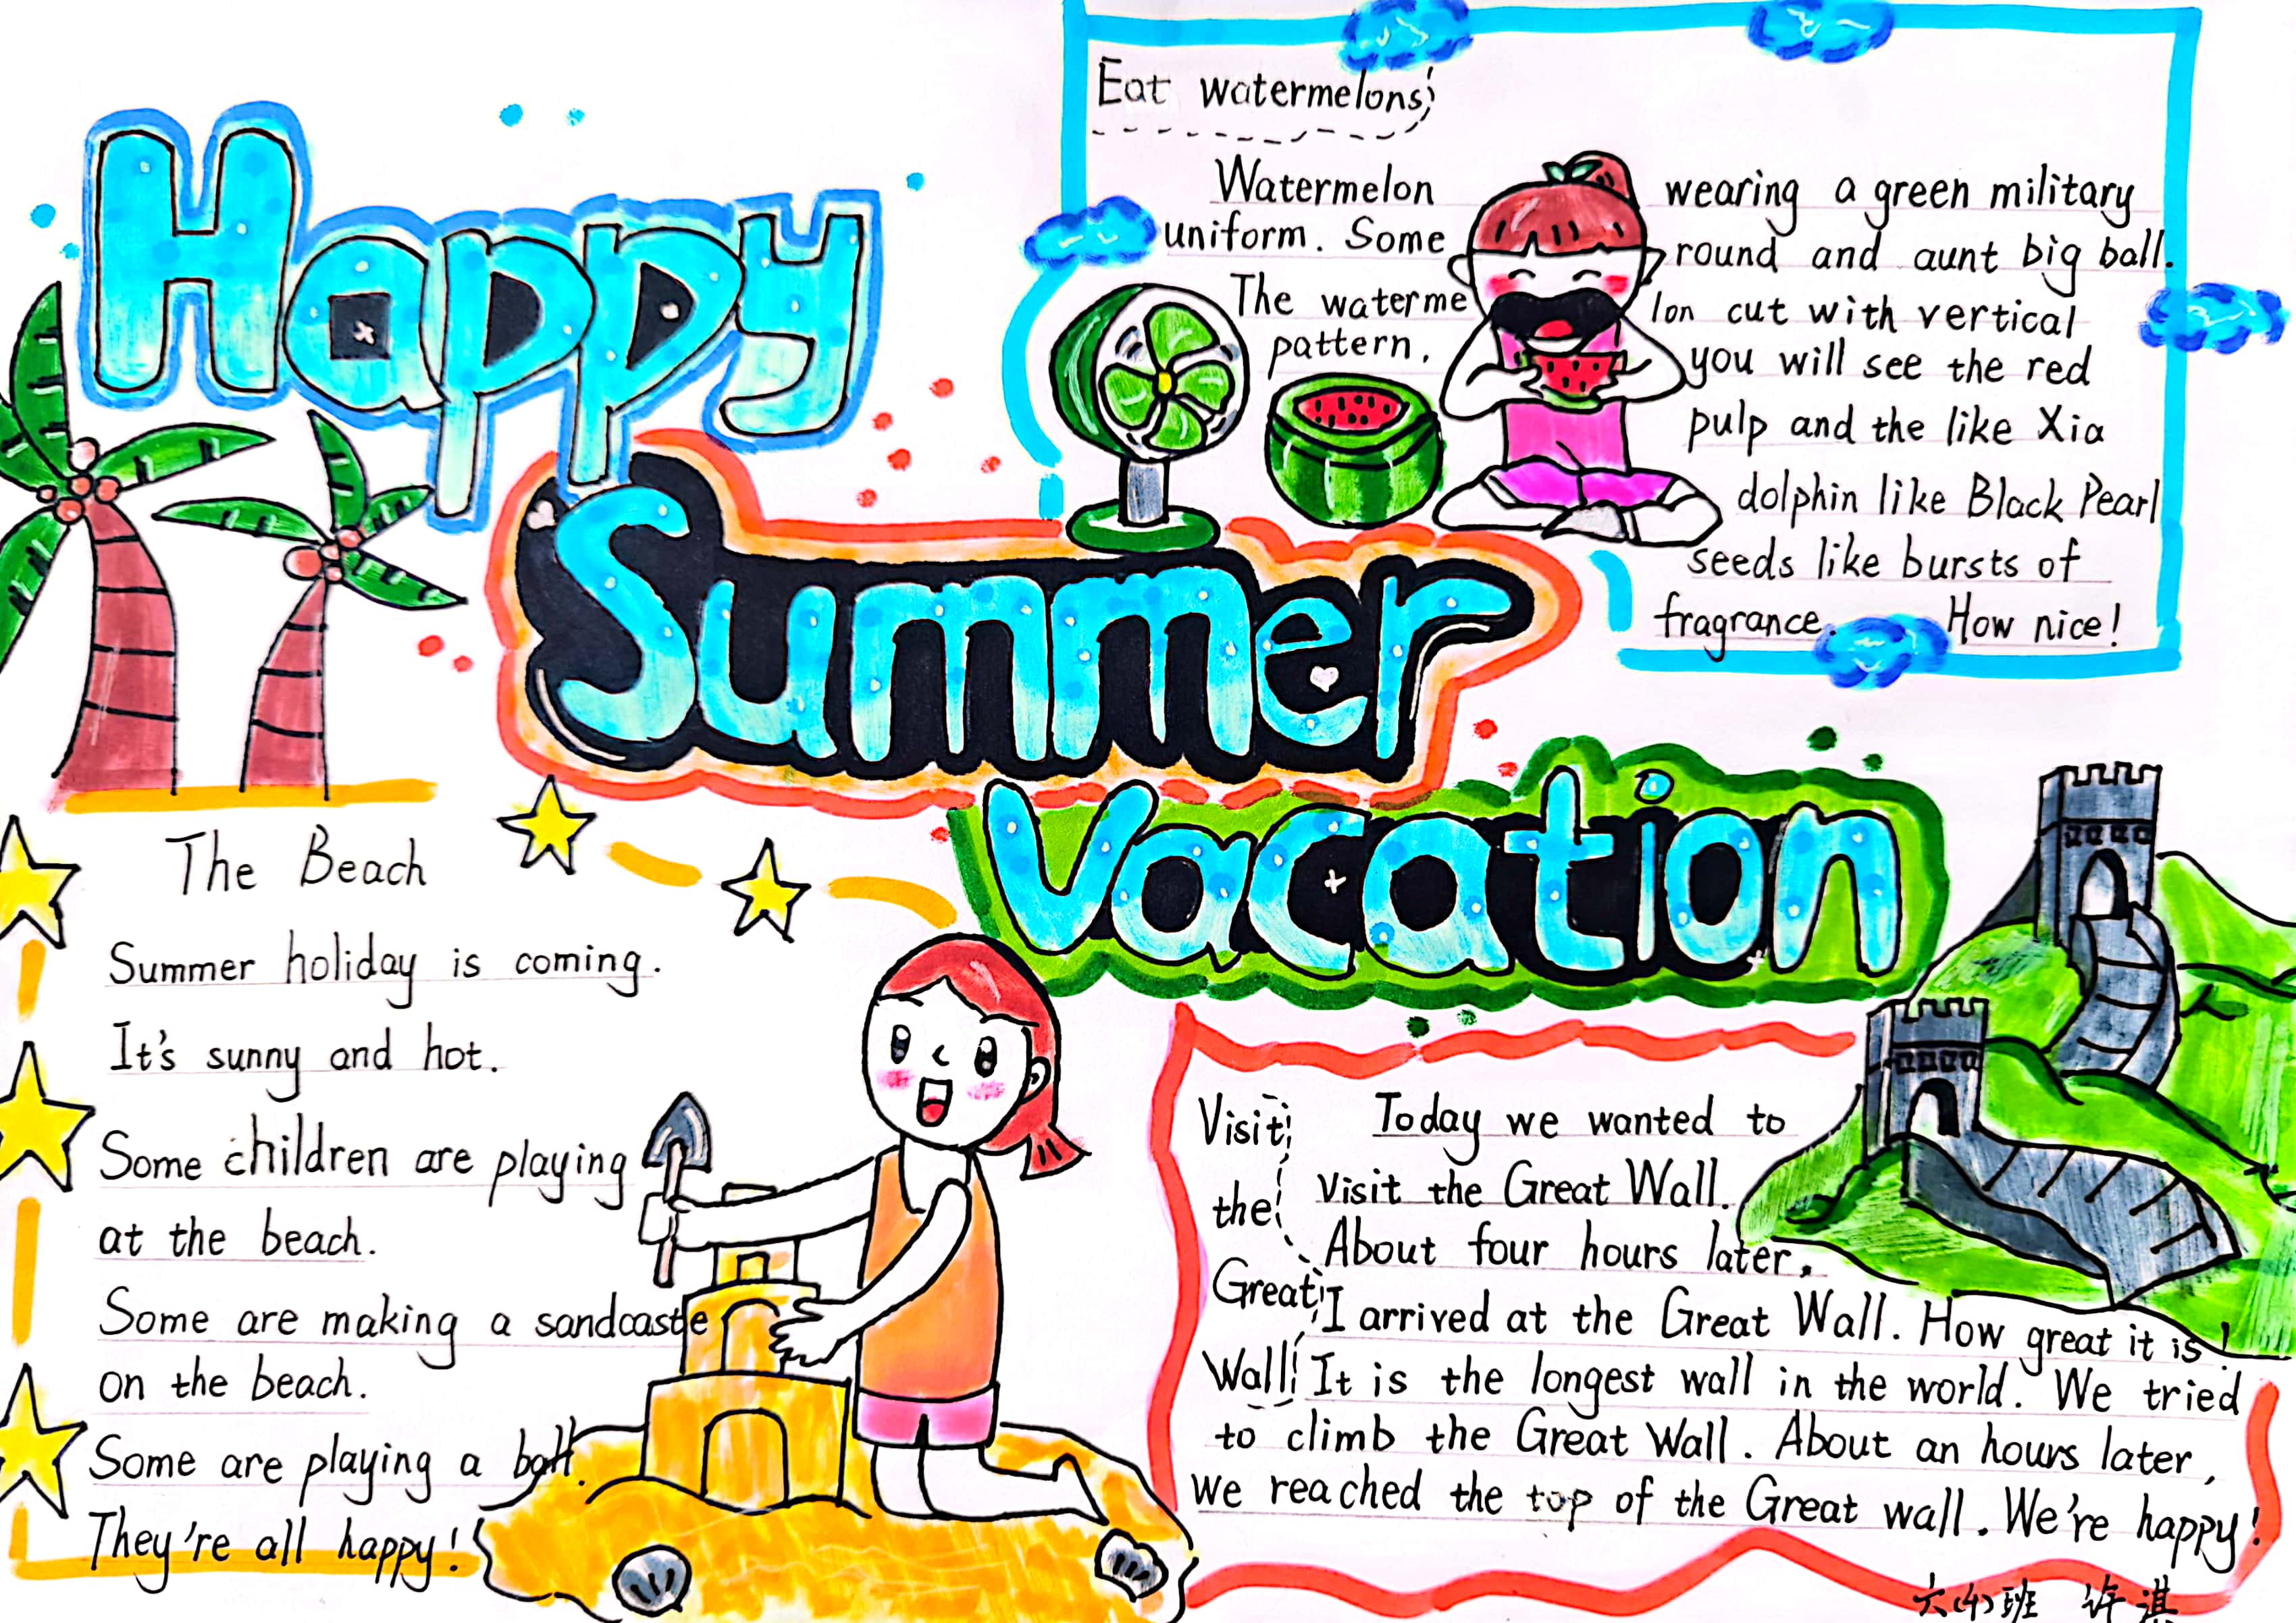 Happy
Summer
Vacation
Eat watermelons
Watermelon wearing a green military
uniform. Some round and aunt big ball.
The watermelon cut with vertical
pattern. you will see the red
pulp and the like Xia
dolphin like Black Pearl
seeds like bursts of
fragrance. How nice!
The Beach
Summer holiday is coming.
It's sunny and hot.
Some children are playing
at the beach.
Some are making a sandcastle
on the beach.
Some are playing a ball.
They're all happy!
Visit
the
Great
Wall
Today we wanted to
visit the Great Wall.
About four hours later.
I arrived at the Great Wall. How great it is!
It is the longest wall in the world. We tried
to climb the Great Wall. About an hours later,
we reached the top of the Great wall. We're happy!
六(4)班 许淇